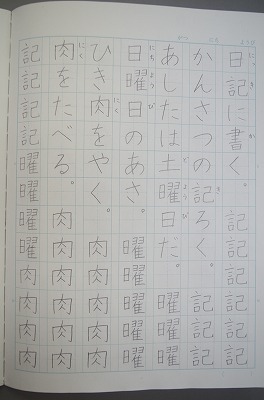 日記に書く。記記記記記記
かんさつの記ろく。記記記
あしたは土曜日だ。曜曜曜
日曜日のあさ。曜曜曜曜曜
ひき肉をやく。肉肉肉肉肉
肉をたべる。肉肉肉肉肉肉
記記記記曜曜曜曜肉肉肉肉